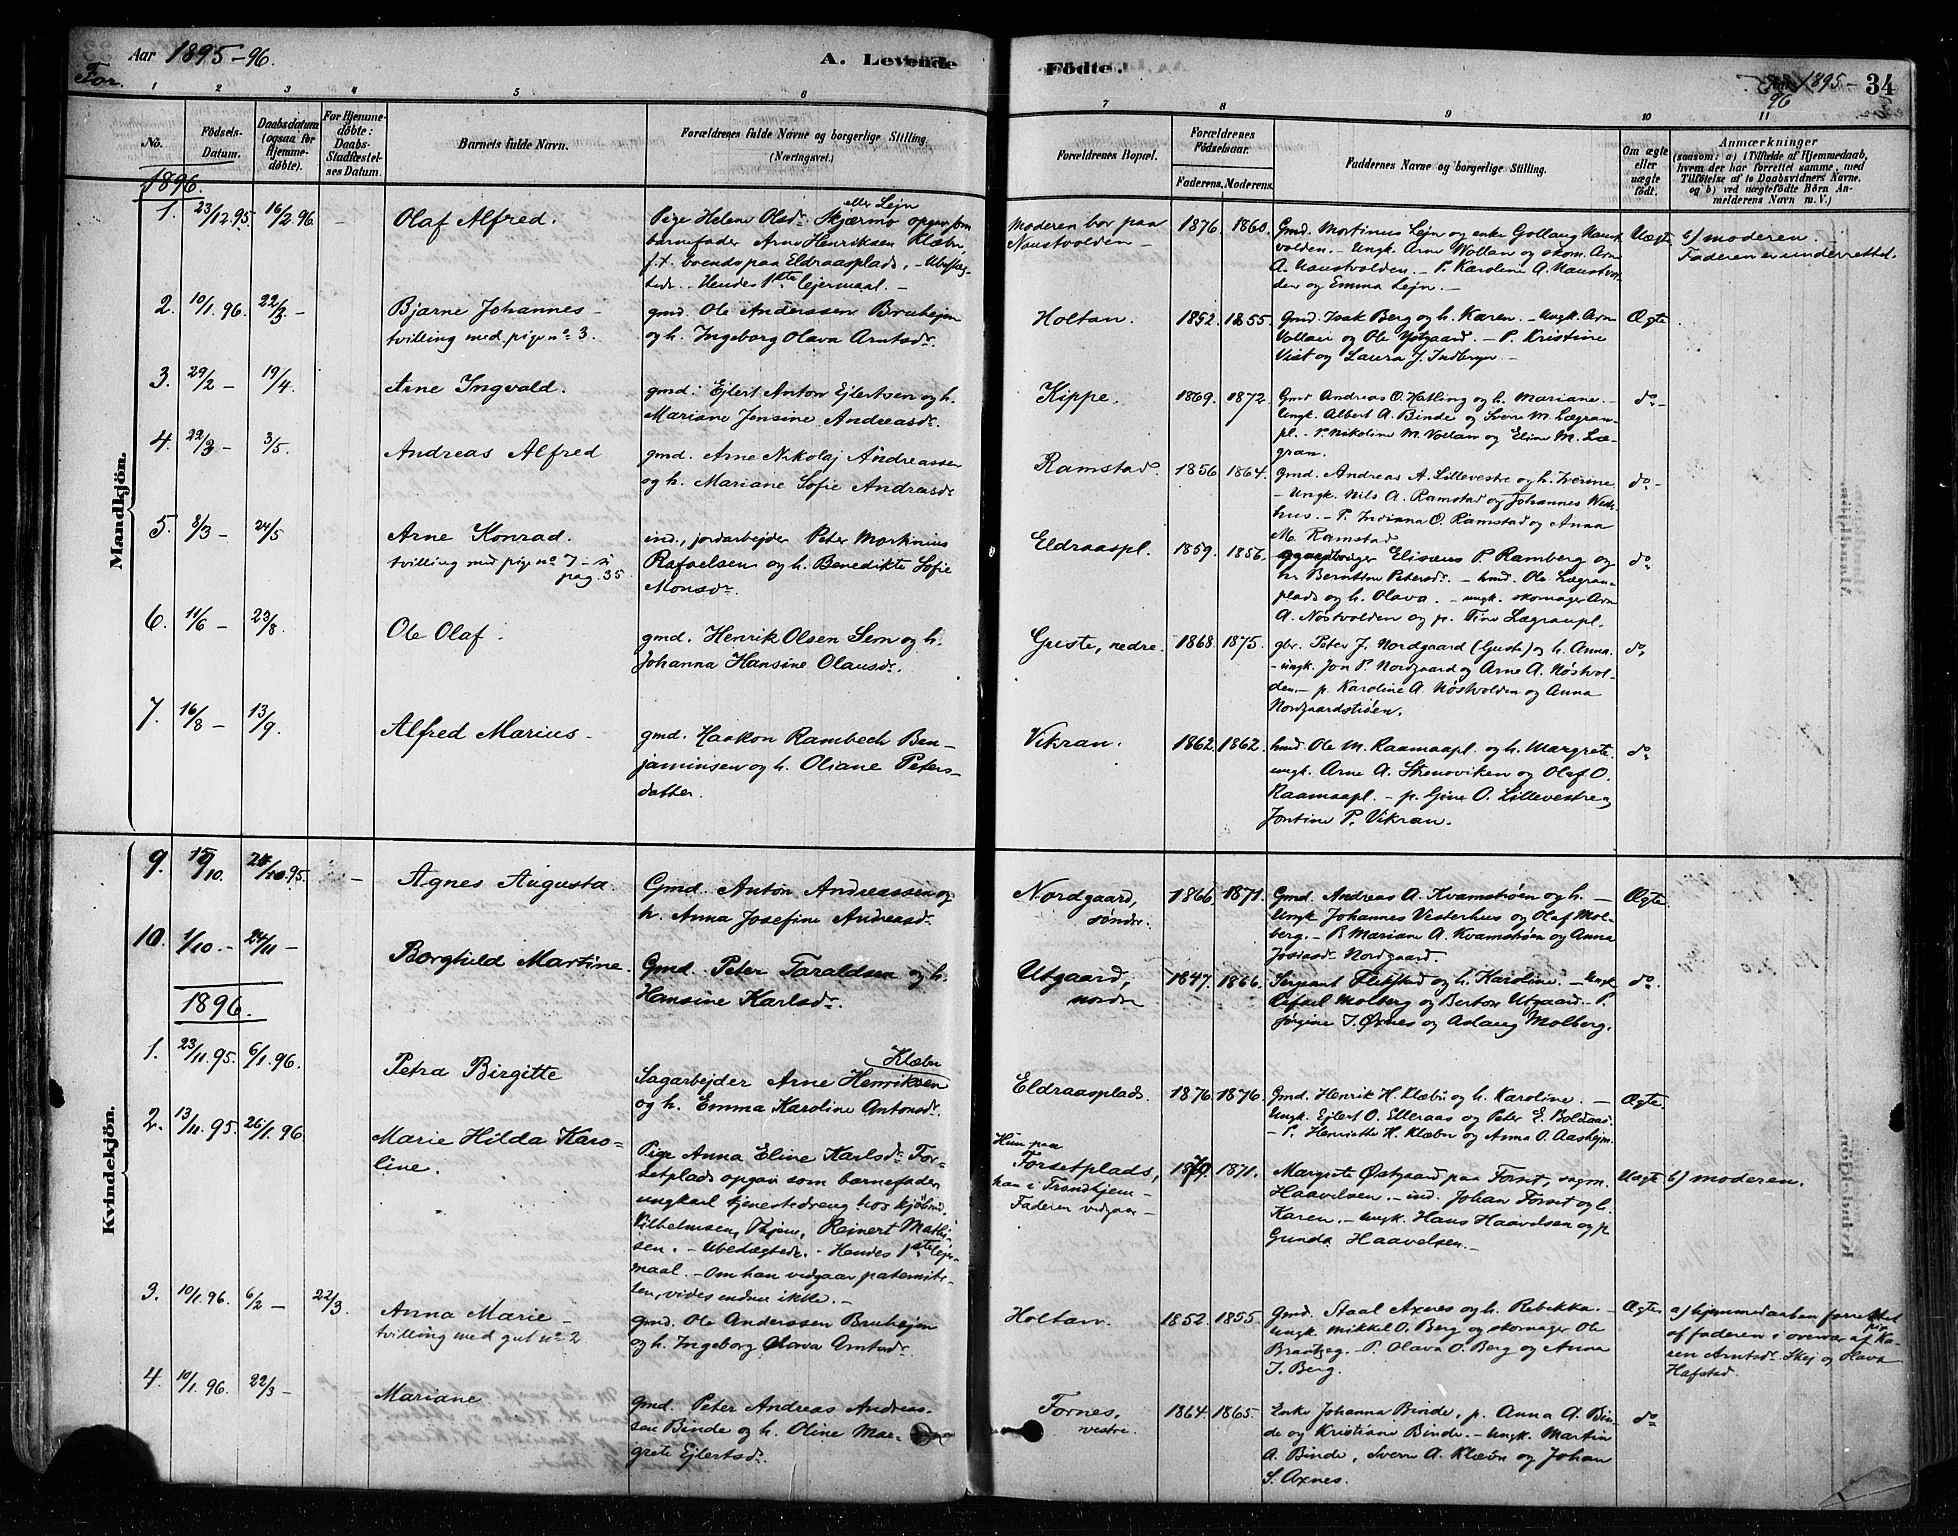 Aar 1895-96.
A. Levende
Födte.
1895-96
34
For.
1 2 3 4 5 6 7 8 9 10 11
No.
Födsels-
Datum.
Daabsdatum
(ogsaa for
Hjemme-
döbte).
For Hjemme-
döbte:
Daabs-
Stadfæstel-
ses Datum.
Barnets fulde Navn.
Forældrenes fulde Navne og borgerlige Stilling.
(Næringsvei.)
Forældrenes Bopæl.
Forældrenes
Födselsaar.
Faderens. Moderens.
Faddernes Navne og borgerlige Stilling.
Om ægte
eller
uægte
födt.
Anmærkninger
(saasom: a) i Tilfælde af Hjemmedaab,
hvem der har forrettet samme, med
Tilföielse af to Daabsvidners Navne,
og b) ved uægtefödte Börn An-
melderens Navn m. V.)
Mandkjön.
1896.
1. 23/12.95. 16/2.96. -
Olaf Alfred.
eller Lejn
Pige Helene Olsdr. Skjærmo opgav som
barnefader Arne Henriksen Klæbu
f.t. boende paa Eldraasplads. - Ubeslæg-
tede. Hendes 1ste lejermaal. -
Moderen bor paa
Naustvolden -
1876. 1860.
Gmd. Martinus Lejn og enke Gollaug Naust-
volden. - Ungk. Arne Wollan og skom. Arn
A. Naustvolden. - P. Karoline A. Naustvol-
den og Emma Lejn. -
Uægte
b) moderen.
Faderen er underrettet.
2. 10/1. 96. 22/3 -
Bjarne Johannes -
tvilling med pige no 3.
gmd. Ole Anderssen Bruhejen
og h. Ingeborg Olava Arntsdr.
Holtan.
1852. 1855.
Gmd. Isak Berg og h. Karen. - Ungk. Arn
Vollan og Ole Ystgaard. - P. Kristine
Vist og Laura J. Indbryn -
Ægte
3. 29/2 - 19/4.
Arne Ingvald.
gmd. Ejlert Anton Ejlertsen og h.
Mariane Jensine Andreasdr.
Kippe.
1869. 1872.
Gmd Andreas O. Hatling og h. Mariane. -
Ungk. Albert A. Binde og Svern M. Lægran-
pl. - P. Nikoline M. Vollan og Eline M. Læ-
gran.
do -
4. 22/3 - 3/5.
Andreas Alfred
gmd. Arne Nikolaj Andreassen
og h. Mariane Sofie Andreasdr
Ramstad
1856 1864.
gmd. Andreas A. Lillevestre og h. Iverine.
- Ungk. Nils A. Ramstad og Johannes West-
hus. - P. Indiana O. Ramstad og Anna
M. Ramstad
do -
5. 8/3 - 24/5
Arne Konrad.
tvilling med pige no 7 - s
pag. 35.
ind., jordarbejder Peter Marknius
Rafaelsen og h. Benedikte Sofie
Monsdr.
Eldraaspl.
1859. 1856.
gaardbruger Elisæus P. Ramberg og
h. Berntine Petersdr. - hmd. Ole Lægran-
plads og h. Olava. - ungk. skomager Arn
A. Nöstvolden og p. Tine Lægranpl.
do
6. 11/6 - 23/8.
Ole Olaf.
gmd. Henrik Olsen Sem og h.
Johanna Hansine Olausdr.
Guste, nedre.
1868. 1875.
gbr. Peter J. Nordgaard (Guste) og h. Anna.
- ungk. Jon P. Nordgaard og Arne A. Nöstvol-
den. - p. Karoline A. Nöstvolden og Anna
Nordgaardströen.
do
7. 16/8 - 13/9.
Alfred Marius -
gmd. Haakon Rambech Ben-
jaminsen og h. Oliane Peters-
datter.
Vikran.
1862. 1862.
hmd. Ole M. Raamaapl. og h. Margrete.
ungk. Arne A. Stenoviken og Olaf O.
Raamaapl. - p. Gine O. Lillevestre og
Jontine P. Vikran.
do
Kvindekjön.
9. /10. 95. -
Agnes Augusta.
Gmd. Anton Andreassen og
h. Anna Josefine Andreasdr.
Nordgaard,
söndre.
1866. 1871.
Gmd. Andreas A. Kvamströen og h. -
Ungk Johannes Vesterhus og Olaf Mol-
berg. - P. Mariane A. Kvamströen og Anna
Josiasdr. Nordgaard.
Ægte
10. 1/10. - 24/11 -
Borghild Martine.
Gmd. Peter Taraldsen og h.
Hansine Karlsdr.
Utgaard,
nordre
1847. 1866.
Sergeant Flekstad og h. Karoline. - Ungk
Rafael Molberg og Berton Utgaard - P.
Jörgine J. Öxnes og Aslaug Molberg.
do.
1896.
1. 23/11. 95. 6/1. 96.
Petra Birgitte
Klæbu
Sagarbejder Arne Henriksen
og h. Emma Karoline Antonsdr.
Eldraasplads.
1876. 1876.
Gmd. Henrik H. Klæbu og h. Karoline. -
Ungk. Ejlert O. Elleraas og Peter E. Boldaas.
- P. Henriette H. Klæbu og Anna O. Aashejm
Ægte.
2. 13/11. 95. 26/1. 96
Marie Hilda Karo-
line.
Pige Anna Eline Karlsdr. For-
setplads opgav som barnefader
ungkarl tjenestedreng hos kjöbmd.
Vilhelmsen, Thjem, Reinert Mathi-
sen. - Ubeslægtede. - Hendes 1ste lejer-
maal. - Om han vidgaar paternite-
ten, vides endnu ikke. -
Hun paa
Forsetplads,
han i Trondhjem -
Faderen vidgaar -
1870. 1871.
Margrete Östgaard paa Forset, sagm.
Haavelsen. - ind. Johan Forset og h.
Karen. - Ungk. Hans Haavelsen og p
Gunda Haavelsen. -
Uægte
b) moderen.
3. 10/1. 96. 6/2 - 22/3.
Anna Marie -
tvilling med gut no 2
gmd. Ole Anderssen Bruhejen
og h. Ingeborg Olava Arntsdr.
Holtan.
1852. 1855.
Gmd. Staal Axnes og h. Rebekka. -
Ungk. Mikkel O. Berg og skomager Ole
Brantzeg. - P. Olava O. Berg og Anna
I. Berg.
Ægte.
a) hjemmedaaben forrettet
af faderen i overvær af pig. Ka-
ren Arntsdr. Skej og Olava
Hafstad.
4. 10/1. 96. 22/3 -
Mariane
Gmd. Peter Andreas Andreas-
sen Binde og h. Oline Mar-
grete Ejlertsdr.
Fornes,
vestre.
1864. 1865.
Enke Johanna Binde, p. Anna A. Bin-
de og Kristiane Binde. - Ungk. Martin
A. Binde, Svern A. Klæbu og Johan
S. Axnes.
do